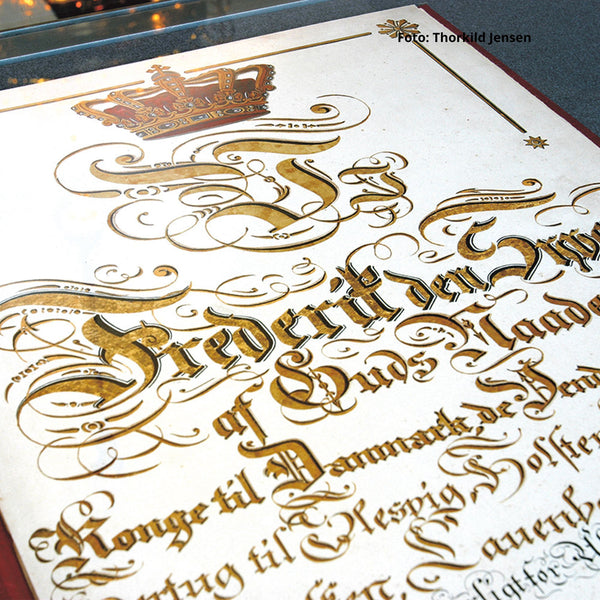 Foto: Thorkild Jensen
Vi
Frederik den Syve
af Guds Naade
Konge til Danmark, de Vend
ertug til Slesvig Holste
en, Lauenb